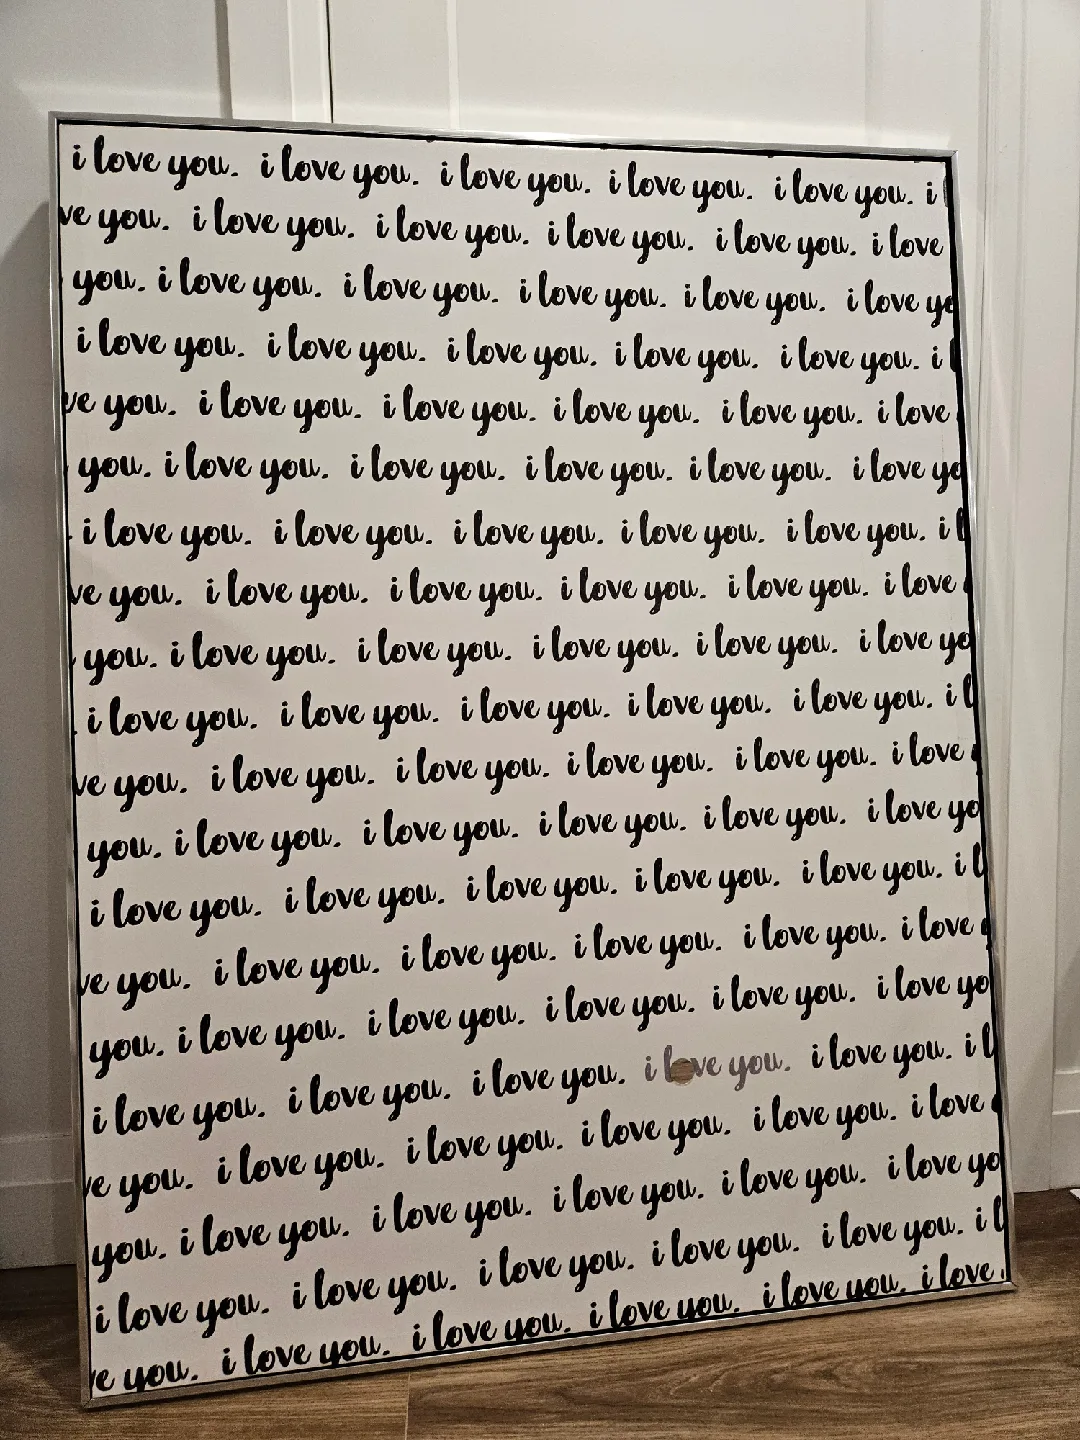 i love you. i love you. i love you. i love you. i love you. i
ve you. i love you. i love you. i love you. i love you. i love
you. i love you. i love you. i love you. i love you. i love yo
i love you. i love you. i love you. i love you. i love you. i l
ve you. i love you. i love you. i love you. i love you. i love
you. i love you. i love you. i love you. i love you. i love yo
i love you. i love you. i love you. i love you. i love you. i l
ve you. i love you. i love you. i love you. i love you. i love
you. i love you. i love you. i love you. i love you. i love yo
i love you. i love you. i love you. i love you. i love you. i l
ve you. i love you. i love you. i love you. i love you. i love
you. i love you. i love you. i love you. i love you. i love yo
i love you. i love you. i love you. i love you. i love you. i l
ve you. i love you. i love you. i love you. i love you. i love
you. i love you. i love you. i love you. i love you. i love yo
i love you. i love you. i love you. i love you. i love you. i l
ve you. i love you. i love you. i love you. i love you. i love
you. i love you. i love you. i love you. i love you. i love yo
i love you. i love you. i love you. i love you. i love you. i l
e you. i love you. i love you. i love you. i love you. i love